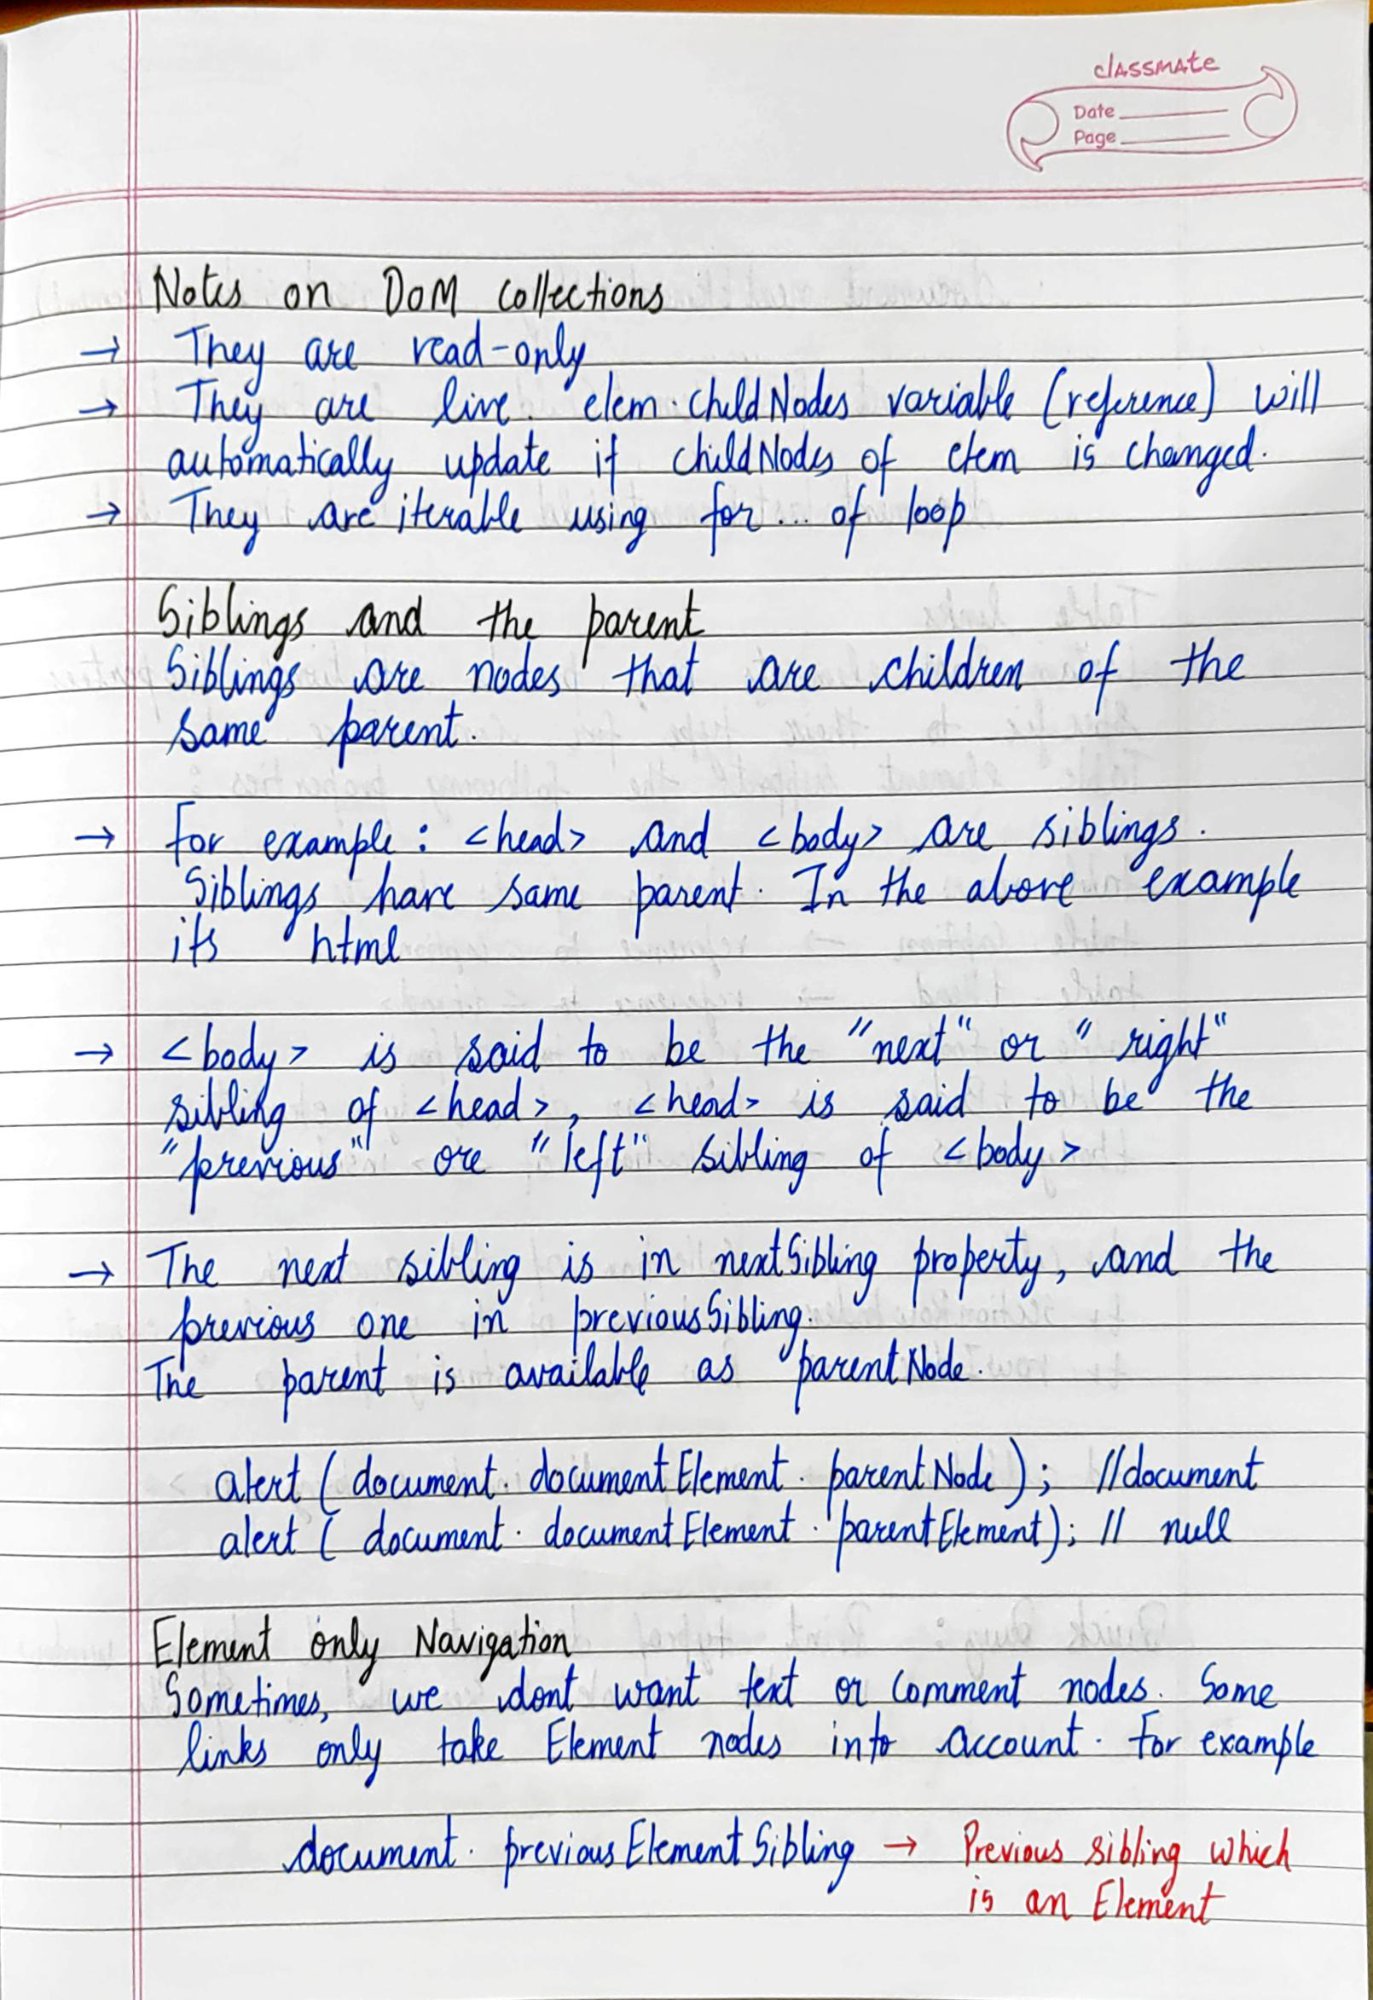 classmate
Date
Page
Notes on DOM collections
→ They are read-only
→ They are live. elem.childNodes variable (reference) will
automatically update if childNodes of elem is changed.
→ They are iterable using for... of loop
Siblings and the parent
Siblings are nodes that are children of the
same parent.
→ For example: <head> and <body> are siblings.
Siblings have same parent. In the above example
its html
→ <body> is said to be the "next" or "right"
sibling of <head>, <head> is said to be the
"previous" ore "left" sibling of <body>
→ The next sibling is in nextSibling property, and the
previous one in previousSibling.
The parent is available as parentNode.
alert (document.documentElement.parentNode); //document
alert (document.documentElement.parentElement); // null
Element only Navigation
Sometimes, we dont want text or comment nodes. Some
links only take Element nodes into account. For example
document.previousElementSibling → Previous sibling which
is an Element